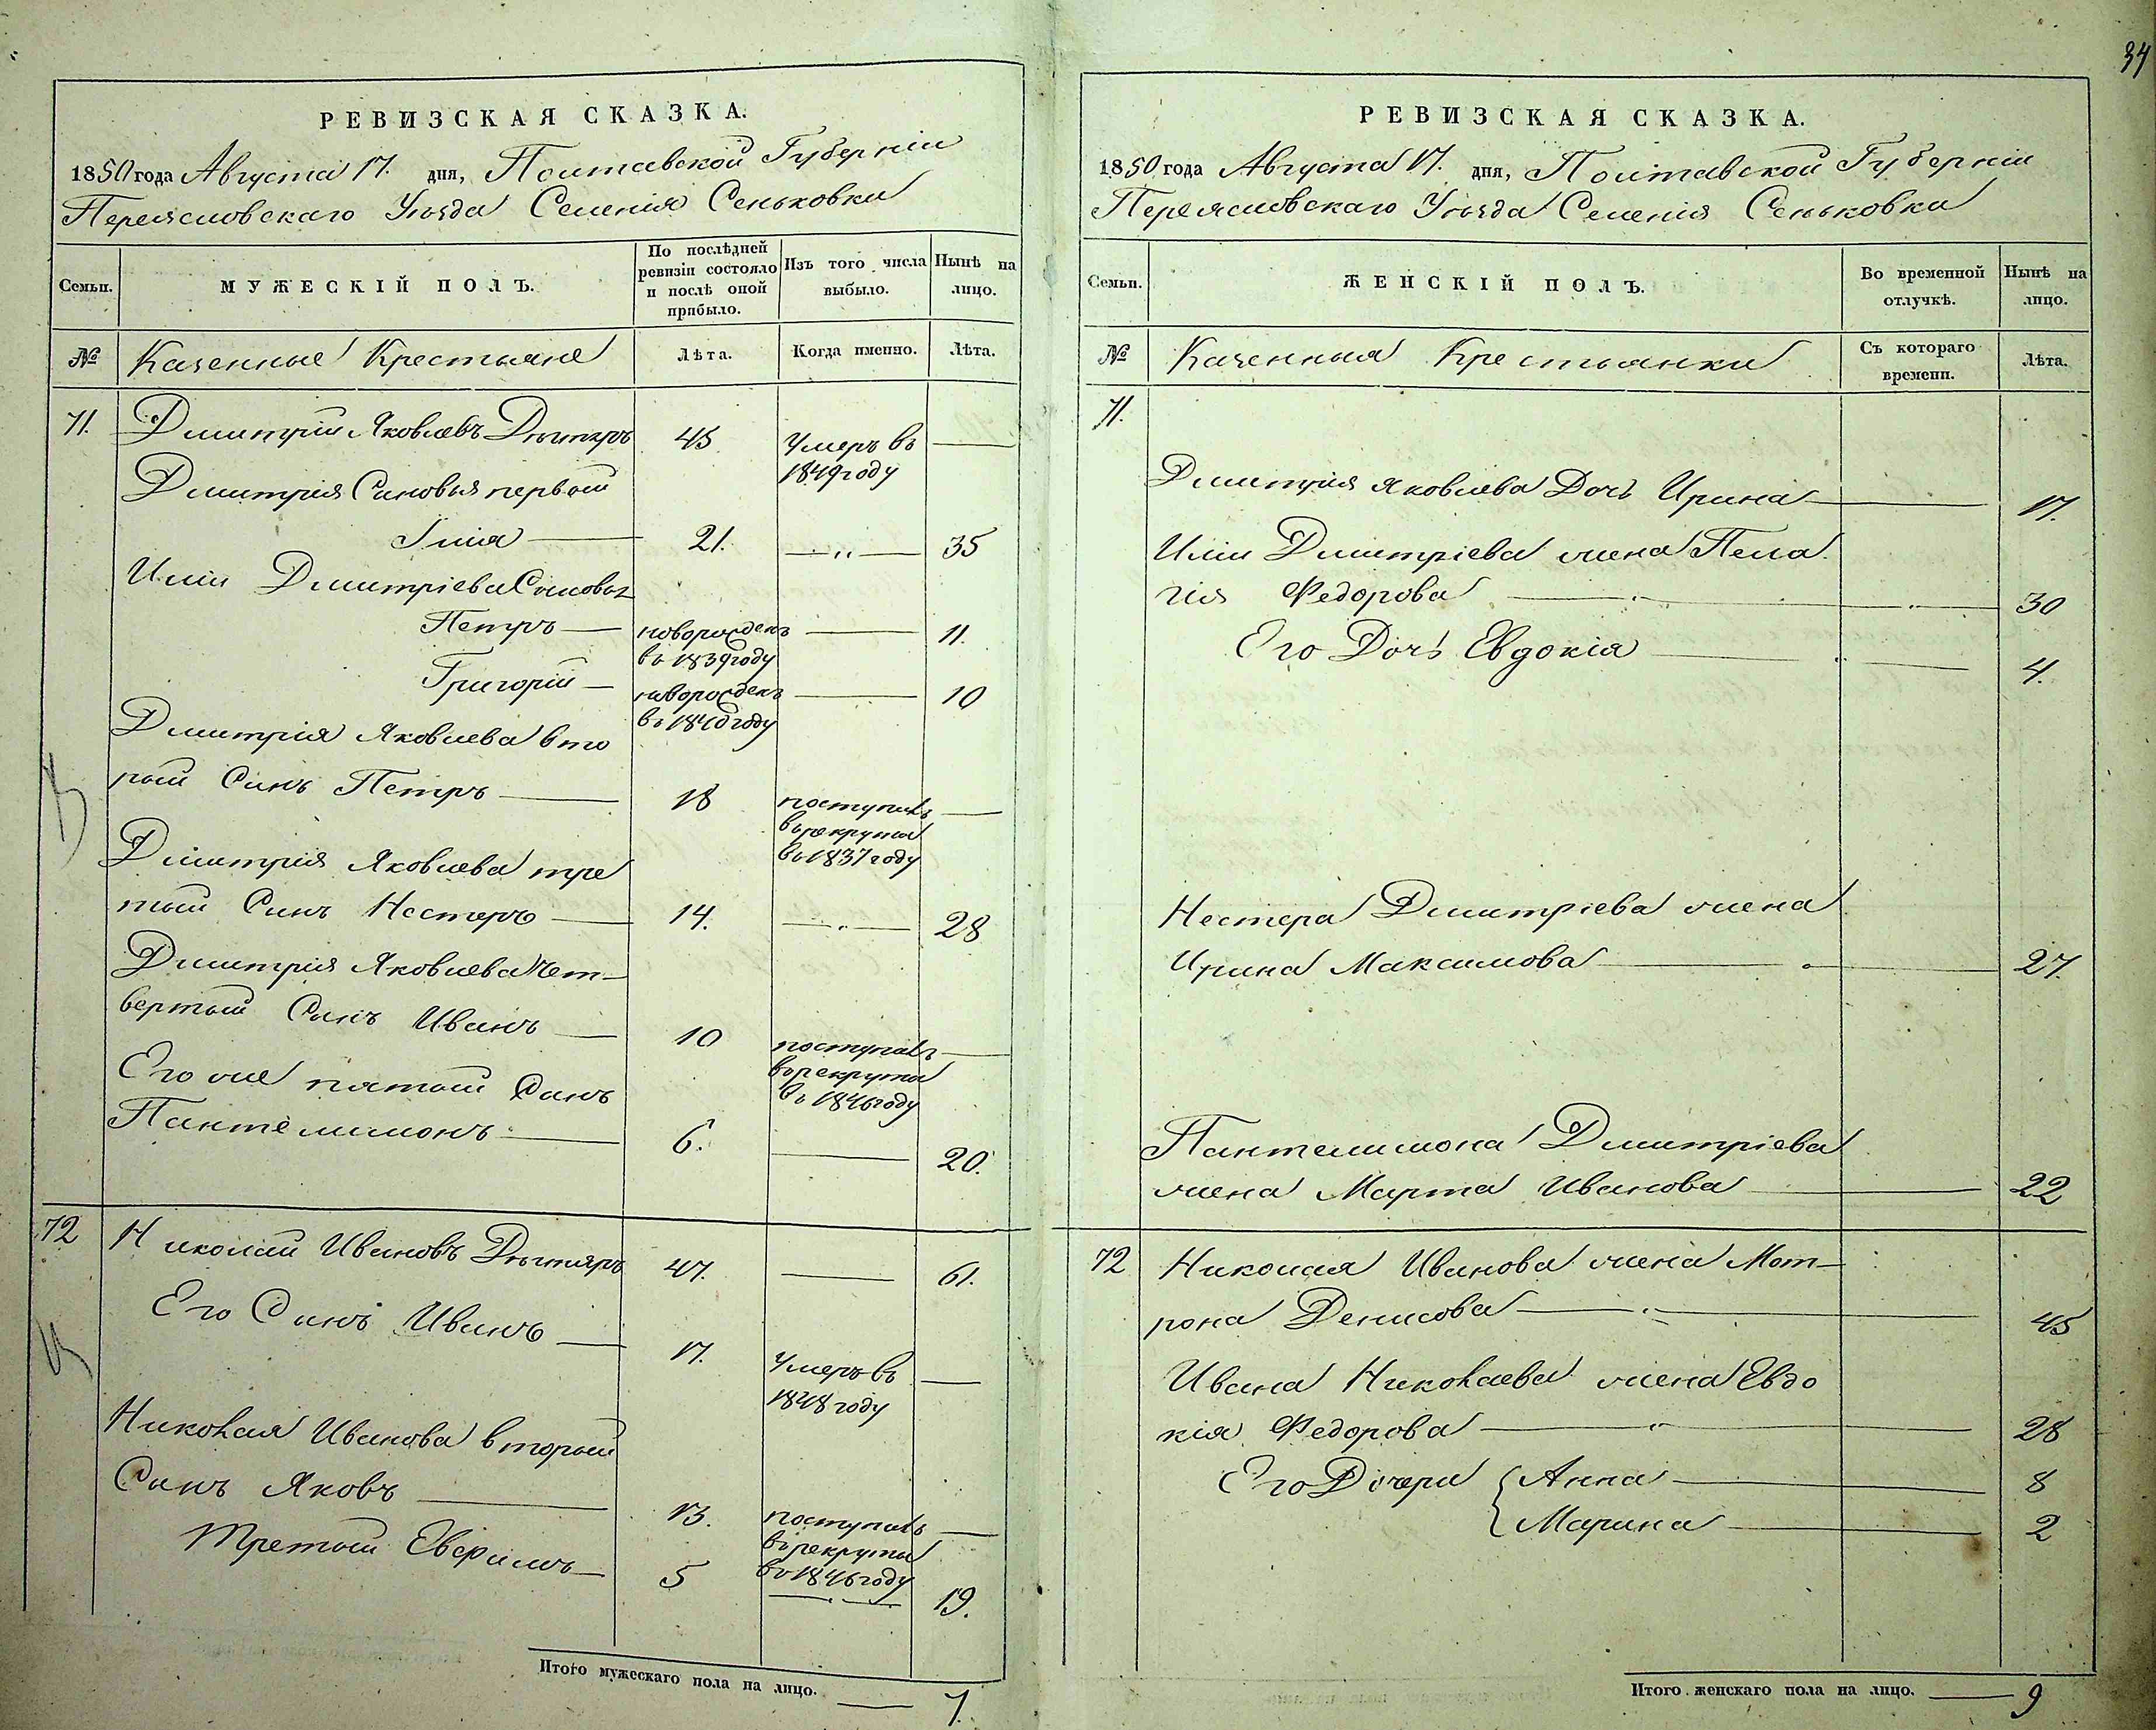 34
РЕВИЗСКАЯ СКАЗКА.
1850 года Августа 17. дня, Полтавской Губерніи
Переясловскаго Уѣзда Селенія Сеньковки
Семьи.
МУЖЕСКІЙ ПОЛЪ.
По послѣдней ревизіи состояло и послѣ оной прибыло.
Изъ того числа выбыло.
Нынѣ на лицо.
№
Казенные Крестьяне
Лѣта.
Когда именно.
Лѣта.
71. Дмитрій Яковлевъ Дѣгтяръ 45 Умеръ въ —
1849 году
Дмитрія Синовья первый
Ілія — 21. — „ — 35
Иліи Дмитріева Синовья
Петръ — новорожденъ — 11.
въ 1839 году
Григорій — новорожденъ — 10
въ 1840 году
Дмитрія Яковлева вто
рый Синъ Петръ — 18 поступилъ —
въ рекруты
въ 1837 году
Дмитрія Яковлева тре
тый Синъ Нестеръ — 14. — „ — 28
Дмитрія Яковлева Чет-
вертый Синъ Иванъ — 10 поступилъ —
въ рекруты
въ 1846 году
Его же пятый Синъ
Пантелимонъ — 6. — 20.
72 Николай Ивановъ Дѣгтяръ 47. — 61.
Его Синъ Иванъ — 17. Умеръ въ —
1848 году
Николая Иванова вторый
Синъ Яковъ — 13. поступилъ —
въ рекруты
въ 1846 году
Третый Евфимъ — 5 — „ — 19.
Итого мужескаго пола на лицо. — 7.
РЕВИЗСКАЯ СКАЗКА.
1850 года Августа 17. дня, Полтавской Губерніи
Переясловскаго Уѣзда Селенія Сеньковки
Семьи.
ЖЕНСКІЙ ПОЛЪ.
Во временной отлучкѣ.
Нынѣ на лицо.
№
Казенныя Крестьянки
Съ котораго времени.
Лѣта.
71.
Дмитрія Яковлева Дочь Ирина — 17.
Иліи Дмитріева жена Пела
гія Федорова — „ — 30
Его Дочь Евдокія — „ — 4.
Нестера Дмитріева жена
Ирина Максимова — 27.
Пантелимона Дмитріева
жена Марта Иванова — 22
72 Николая Иванова жена Мот-
рона Денисова — „ — 45
Ивана Николаева жена Евдо
кія Федорова — „ — 28
Его Дочери { Анна — 8
Марина — 2
Итого женскаго пола на лицо. — 9